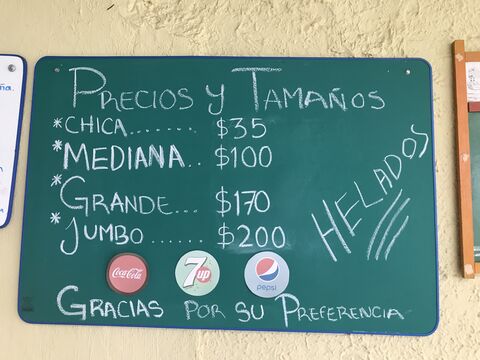 PRECIOS Y TAMAÑOS
*CHICA....... $35
*MEDIANA.. $100
*GRANDE... $170
*JUMBO...... $200
HELADOS
Coca-Cola 7up pepsi
GRACIAS POR SU PREFERENCIA